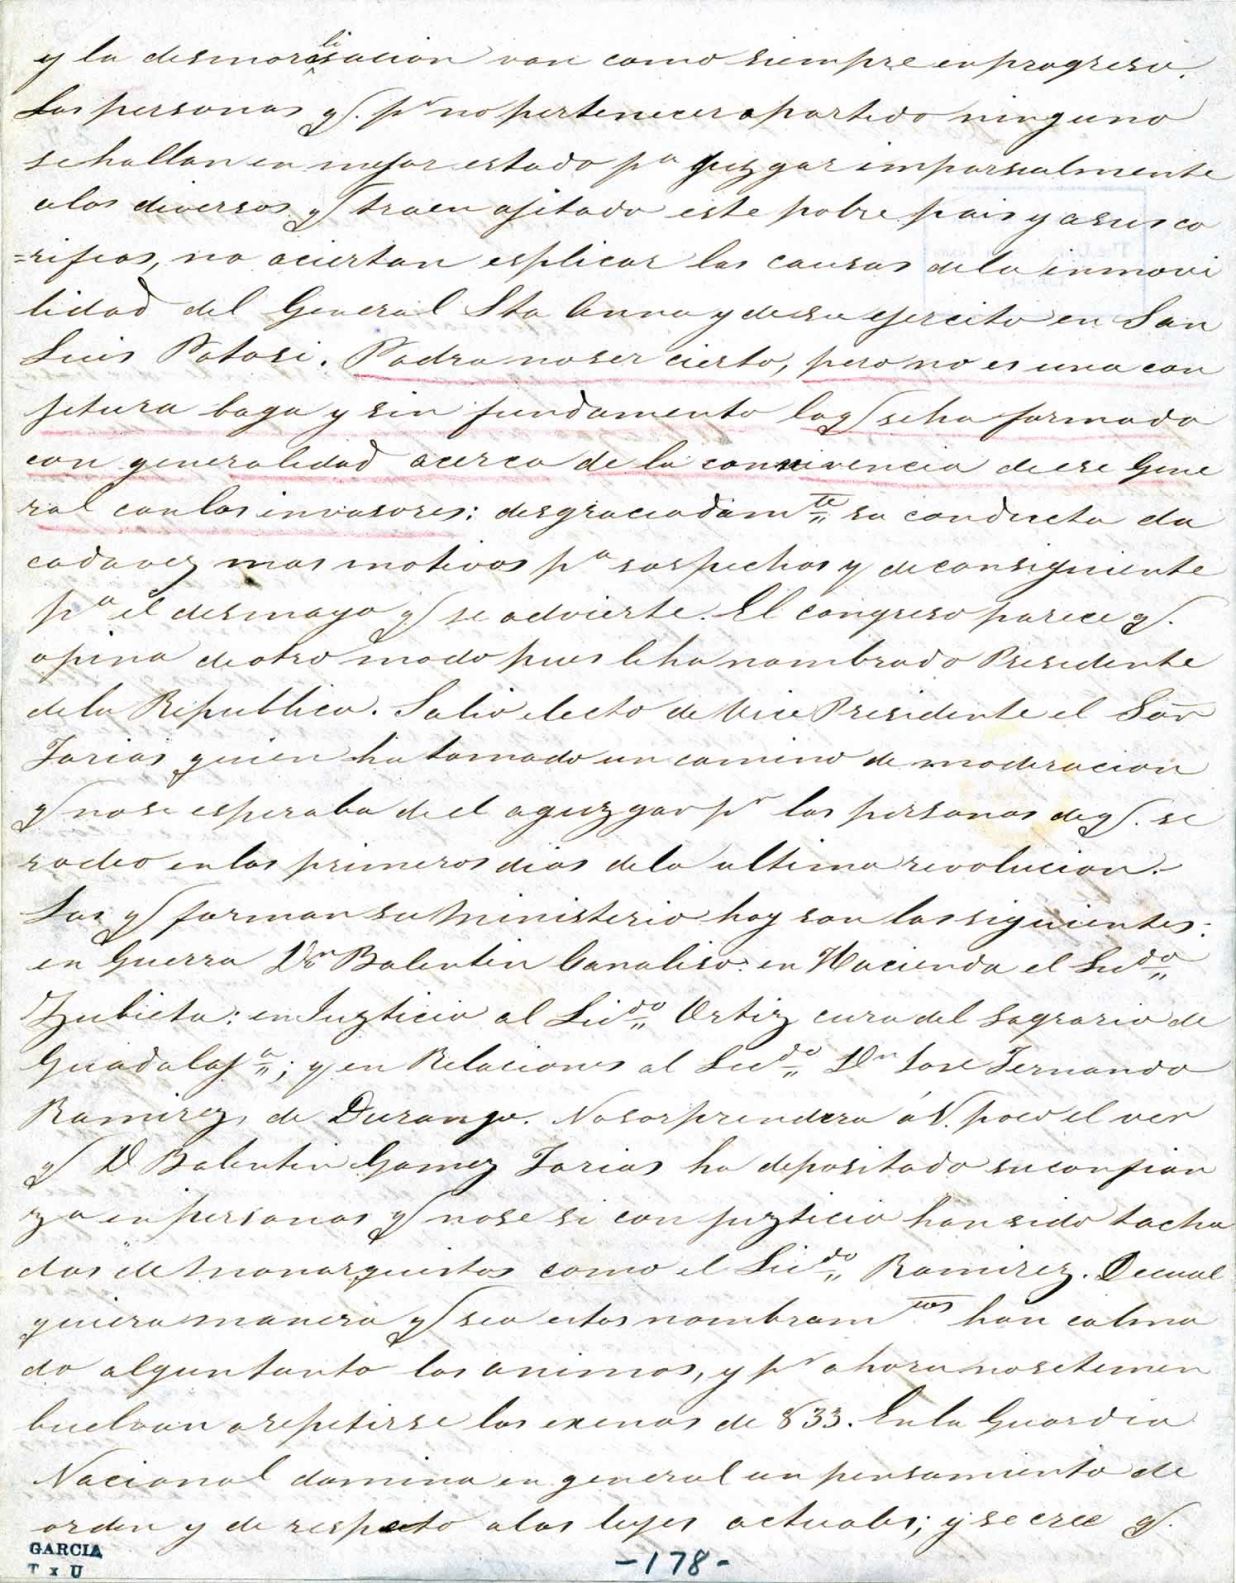 y la desmoralisacion van como siempre en progreso.
Las personas q. pr no pertenecer a partido ninguno
se hallan en mejor estado pa juzgar imparsialmente
a los diversos q traen ajitado este pobre pais y a sus co
=rifeos, no aciertan esplicar las causas de la inmovi
lidad del General Sta Anna y de su ejercito en San
Luis Potosi. Podra no ser cierto, pero no es una con
jetura baga y sin fundamento la q se ha formado
con generalidad acerca de la connivencia de ese Gene
ral con los invasores: desgraciadamte su conducta da
cada vez mas motivos pa sospechas y de consiguiente
pa el desmayo q se advierte. El congreso parece q.
opina de otro modo pues le ha nombrado Presidente
de la Republica. Salio electo de Vice Presidente el Sor
Farias quien ha tomado un camino de moderacion
q no se esperaba de el a guzgar pr las personas de q. se
rodeo en los primeros dias de la ultima revolucion.
Los q forman su Ministerio hoy son los siguientes:
en Guerra Dn Balentin Canaliso: en Hacienda el Licdo
Zubieta: en Juzticia al Licdo Ortiz cura del Sagrario de
Guadalaja; y en Relaciones al Licdo Dn Jose Fernando
Ramirez, de Durango. No sorprendera á V. poco el ver
q D Balentin Gomez Farias ha depositado su confian
za en personas q no se si con juzticia han sido tacha
das de Monarquistas como el Licdo Ramirez. De cual
quiera manera q sea estos nombramtos han calma
do algun tanto los animos, y pr ahora no se temen
buelvan a repetirse las exenas de 833. En la Guardia
Nacional domina en general un pensamiento de
orden y de respecto a las leyes actuales; y se cree q.
GARCIA
T x U
-178-